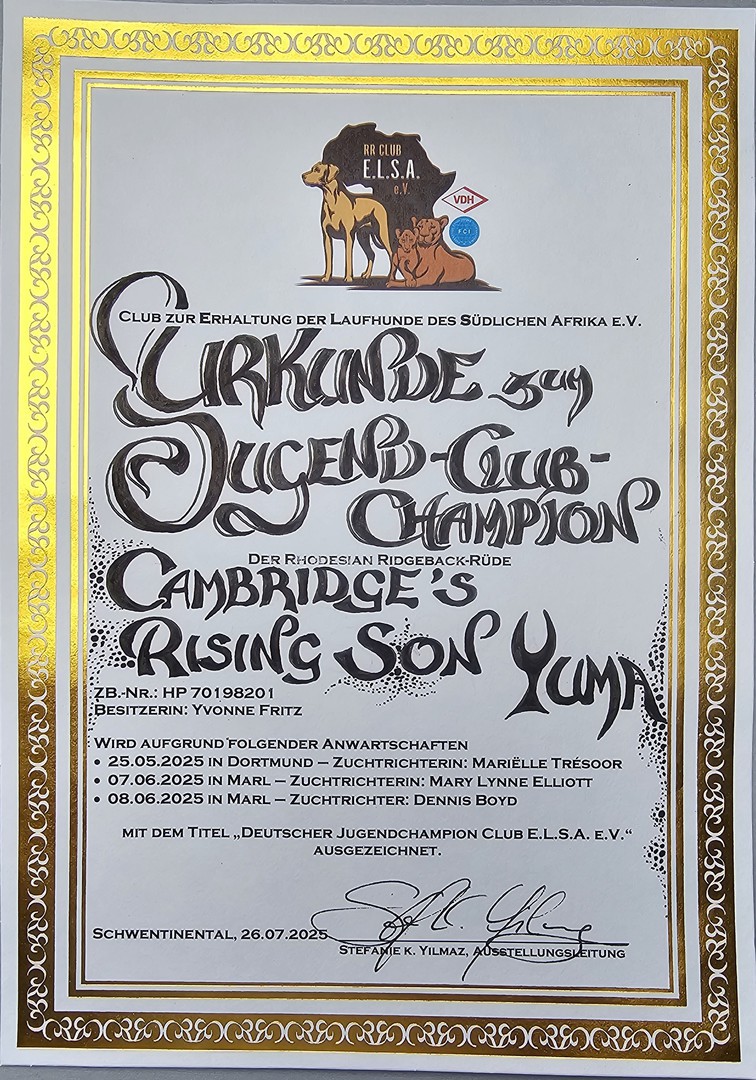 RR CLUB
E.L.S.A.
e.V.
VDH
FCI
CLUB ZUR ERHALTUNG DER LAUFHUNDE DES SÜDLICHEN AFRIKA E.V.
URKUNDE zum
JUGEND-CLUB-
CHAMPION
DER RHODESIAN RIDGEBACK-RÜDE
CAMBRIDGE'S
RISING SON YUMA
ZB.-NR.: HP 70198201
BESITZERIN: YVONNE FRITZ
WIRD AUFGRUND FOLGENDER ANWARTSCHAFTEN
• 25.05.2025 IN DORTMUND – ZUCHTRICHTERIN: MARIËLLE TRÉSOOR
• 07.06.2025 IN MARL – ZUCHTRICHTERIN: MARY LYNNE ELLIOTT
• 08.06.2025 IN MARL – ZUCHTRICHTER: DENNIS BOYD
MIT DEM TITEL „DEUTSCHER JUGENDCHAMPION CLUB E.L.S.A. E.V."
AUSGEZEICHNET.
SCHWENTINENTAL, 26.07.2025
STEFANIE K. YILMAZ, AUSSTELLUNGSLEITUNG